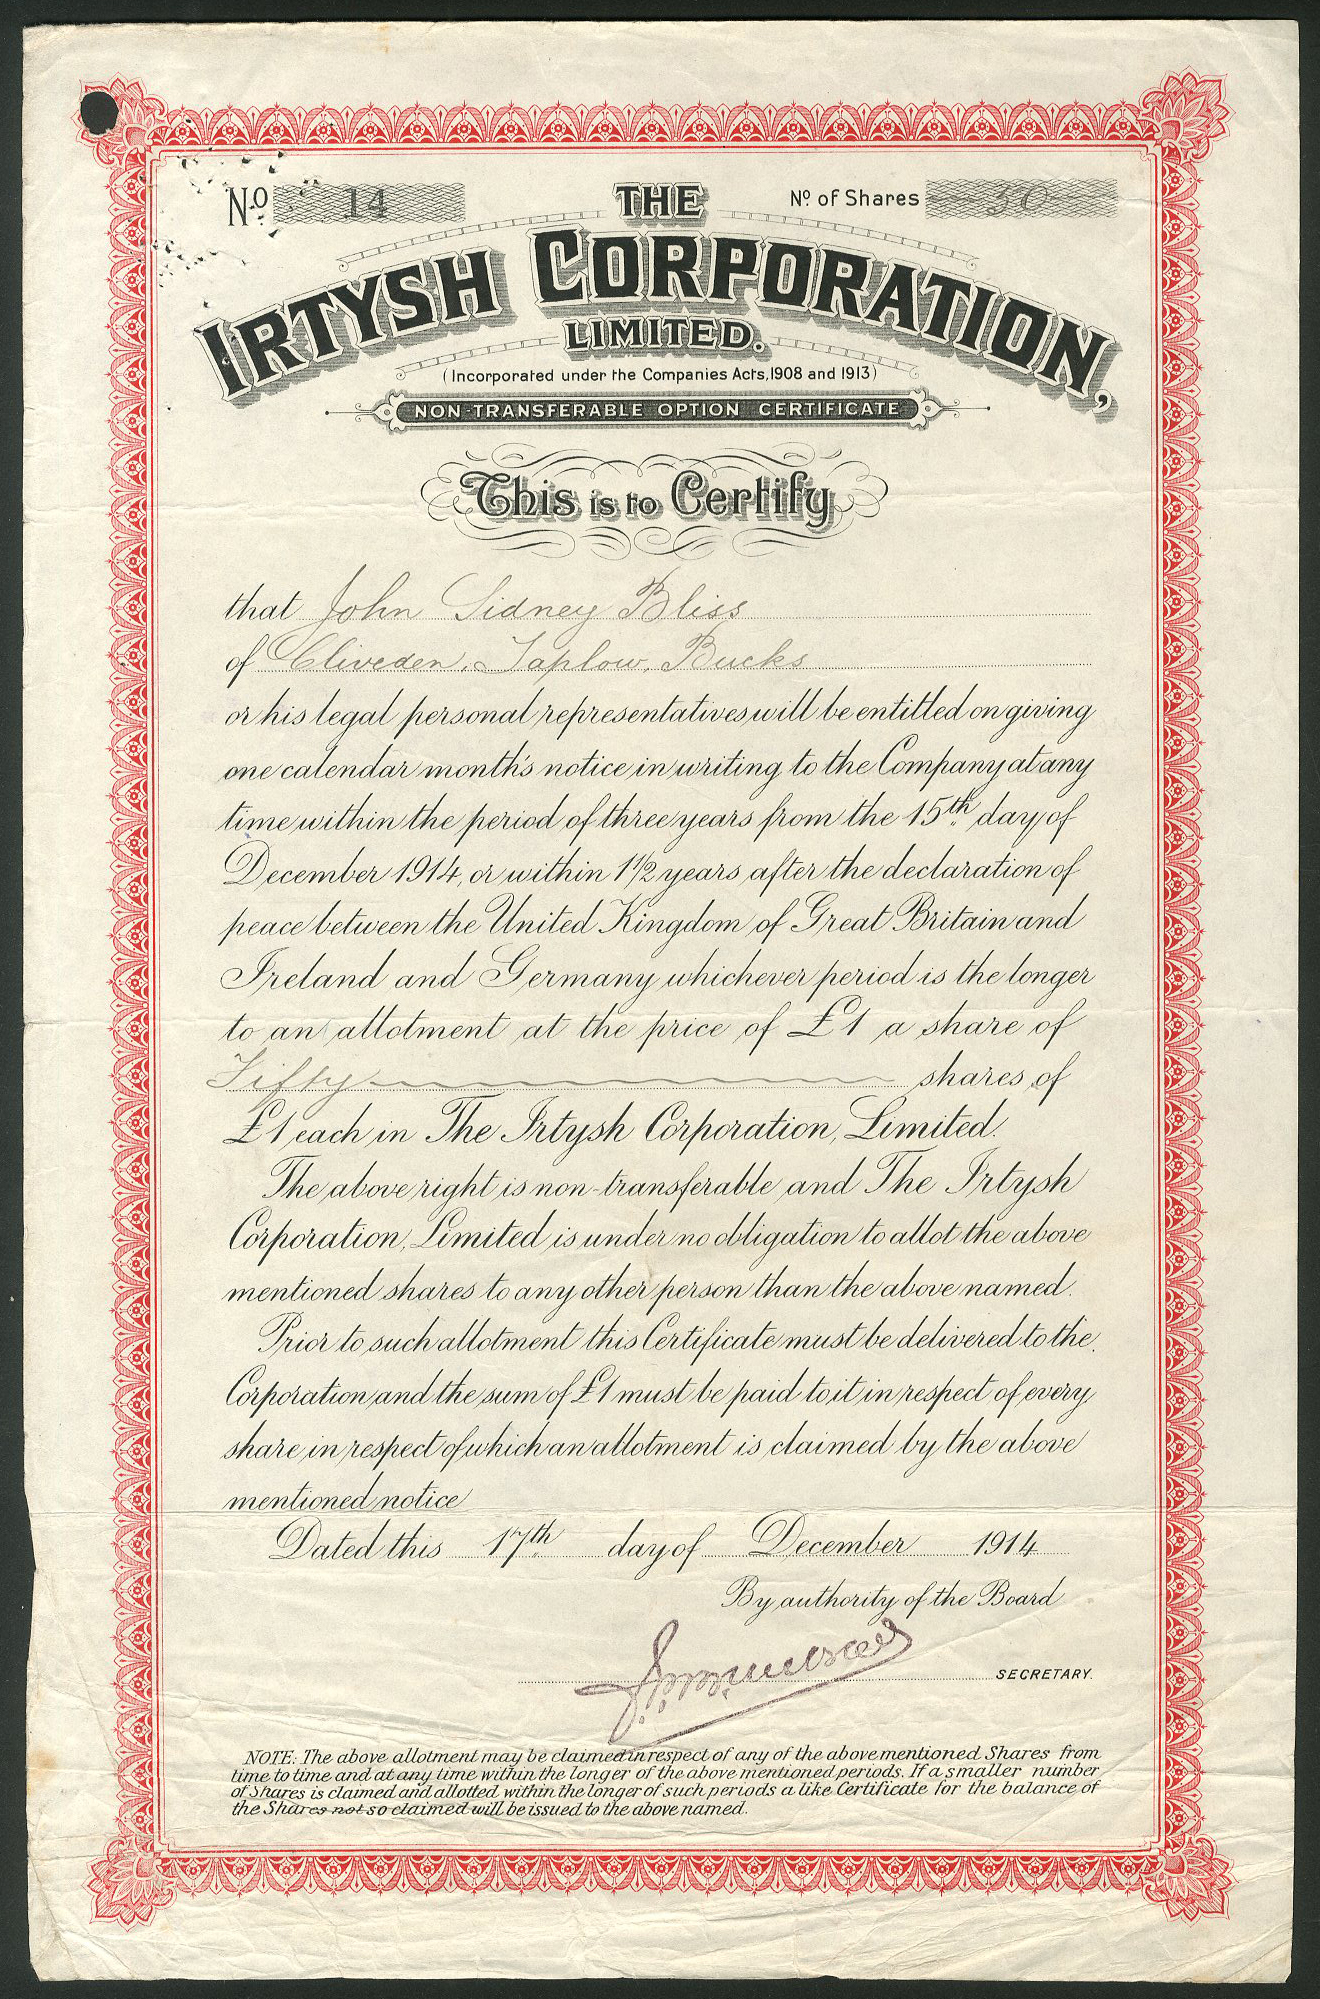 No 14
THE
No. of Shares 50
IRTYSH CORPORATION,
LIMITED.
(Incorporated under the Companies Acts, 1908 and 1913)
NON-TRANSFERABLE OPTION CERTIFICATE
This is to Certify
that John Sidney Bliss
of Cliveden, Taplow, Bucks
or his legal personal representatives will be entitled on giving
one calendar month's notice in writing to the Company at any
time within the period of three years from the 15th day of
December 1914, or within 1 1/2 years after the declaration of
peace between the United Kingdom of Great Britain and
Ireland and Germany whichever period is the longer
to an allotment at the price of £1 a share of
Fifty shares of
£1 each in The Irtysh Corporation, Limited.
The above right is non-transferable and The Irtysh
Corporation, Limited is under no obligation to allot the above
mentioned shares to any other person than the above named.
Prior to such allotment this Certificate must be delivered to the
Corporation and the sum of £1 must be paid to it in respect of every
share in respect of which an allotment is claimed by the above
mentioned notice
Dated this 17th day of December 1914
By authority of the Board
SECRETARY.
NOTE: The above allotment may be claimed in respect of any of the above mentioned Shares from
time to time and at any time within the longer of the above mentioned periods. If a smaller number
of Shares is claimed and allotted within the longer of such periods a like Certificate for the balance of
the Shares not so claimed will be issued to the above named.